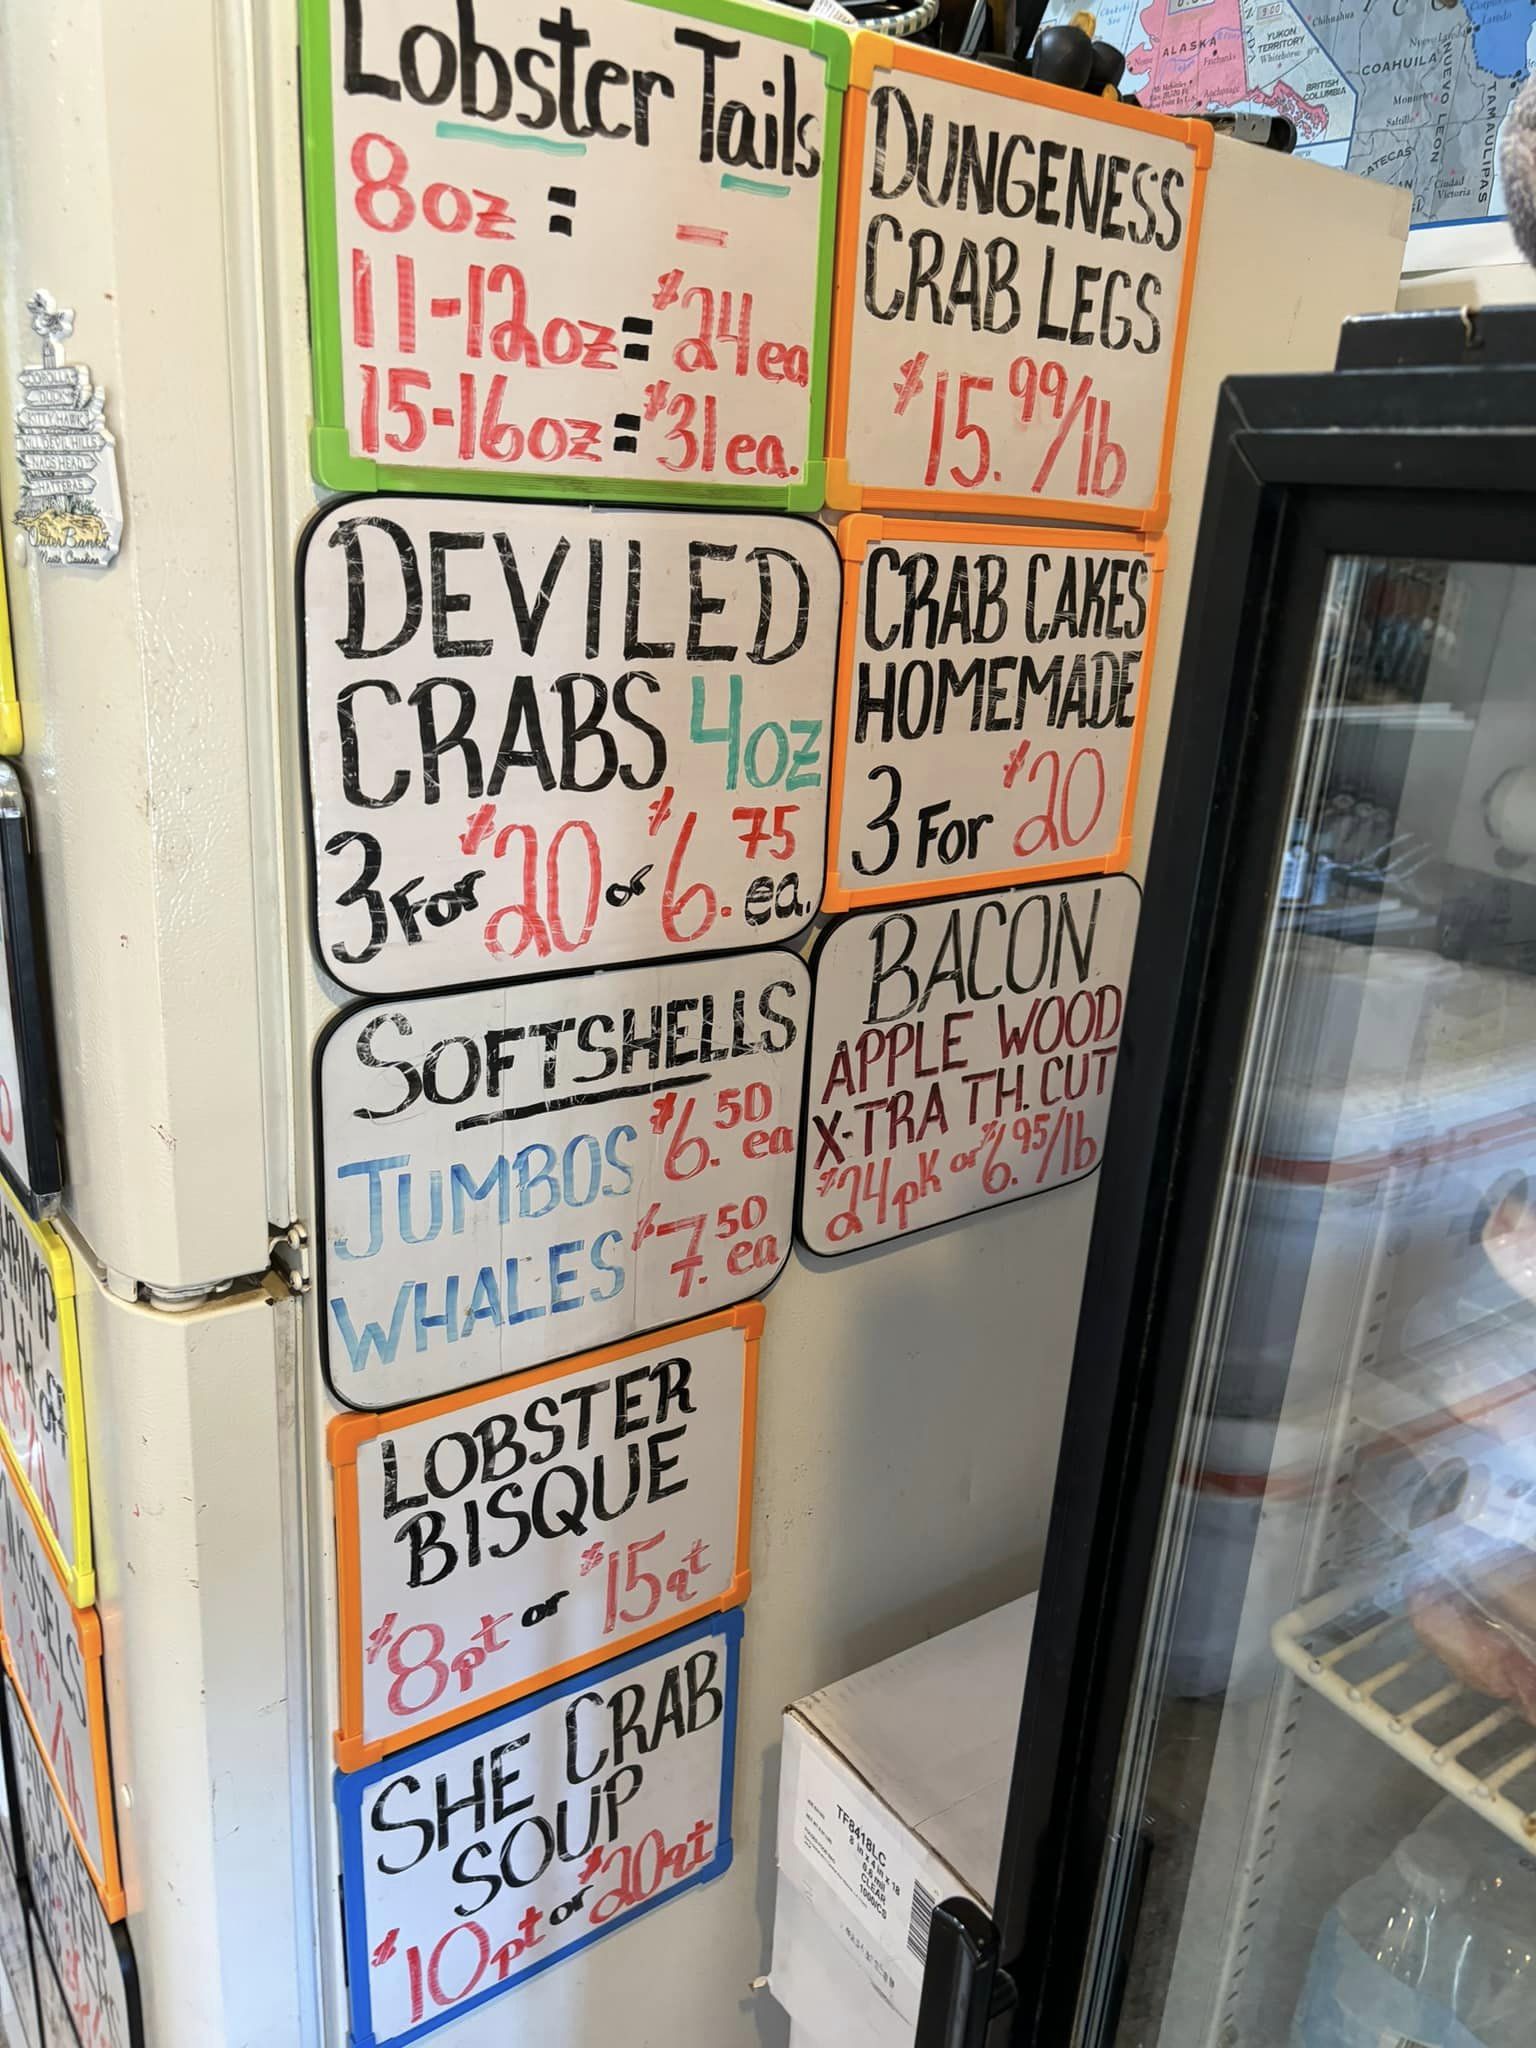 Lobster Tails
8oz = -
11-12oz = $24 ea
15-16oz = $31 ea.
DUNGENESS
CRAB LEGS
$15.99/lb
DEVILED
CRABS 4oz
3 For $20 or $6.75 ea.
CRAB CAKES
HOMEMADE
3 For $20
SOFTSHELLS
JUMBOS $6.50 ea
WHALES $7.50 ea
BACON
APPLE WOOD
X-TRA TH. CUT
$24 pk or $6.95/lb
LOBSTER
BISQUE
$8 pt or $15 qt
SHE CRAB
SOUP
$10 pt or $20 qt
COROLLA
DUCK
KITTY HAWK
KILL DEVIL HILLS
NAGS HEAD
HATTERAS
Outer Banks
North Carolina
ALASKA
Nome
Fairbanks
Anchorage
YUKON
TERRITORY
Whitehorse
BRITISH
COLUMBIA
9:00
Chihuahua
COAHUILA
NUEVO LEON
TAMAULIPAS
Monterrey
Saltillo
Ciudad
Victoria
Laredo
TF8418LC
8 in x 4 in x 18
0.6 mil
CLEAR
1000/CS